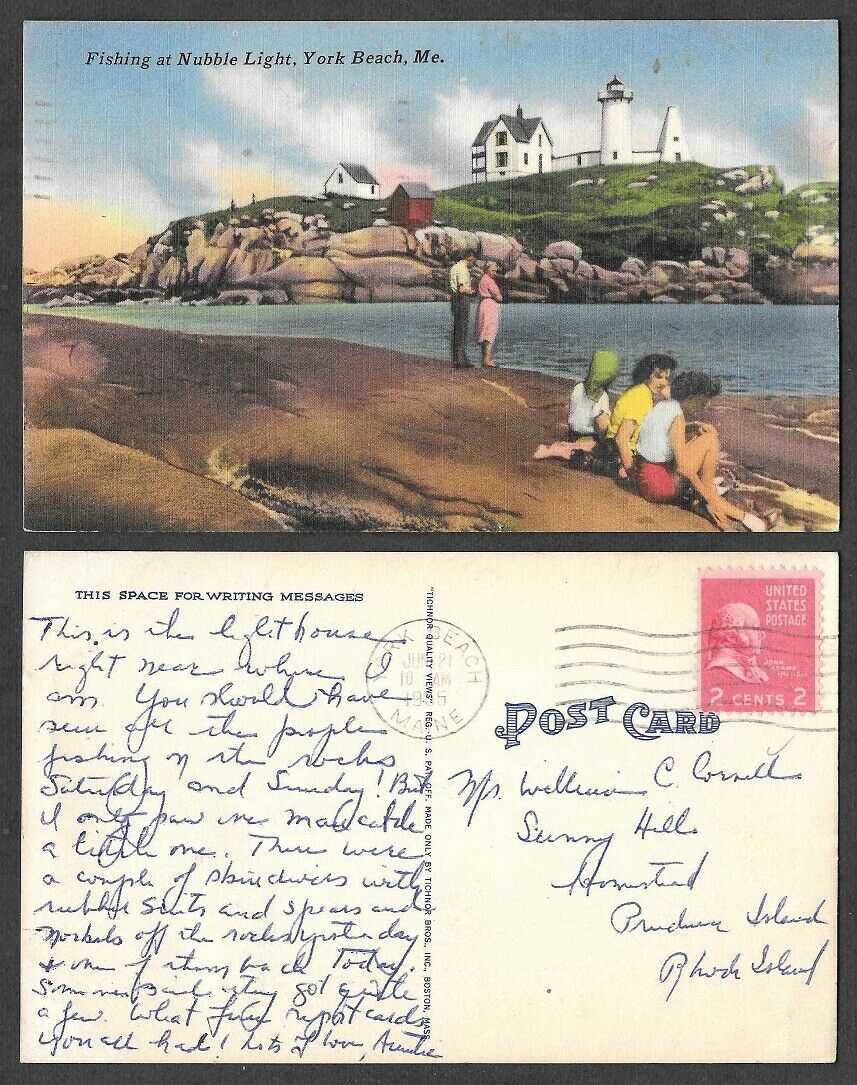 Fishing at Nubble Light, York Beach, Me.
THIS SPACE FOR WRITING MESSAGES
This is the lighthouse
right near where I
am. You should have
seen all the people
fishing on the rocks
Saturday and Sunday! But
I only saw one man catch
a little one. There were
a couple of skindivers with
rubber suits and spears and
snorkels off the rocks yesterday
& one of them back Today.
Someone said they got quite
a few. What fine report cards
you all had! Lots of love, Auntie
"TICHNOR QUALITY VIEWS" REG. U. S. PAT. OFF. MADE ONLY BY TICHNOR BROS., INC., BOSTON, MASS.
YORK BEACH
JUN 21
10 AM
MAINE
UNITED
STATES
POSTAGE
JOHN
ADAMS
2 CENTS 2
POST CARD
William C. Cornell
Sunny Hill
Homestead
Prudence Island
Rhode Island